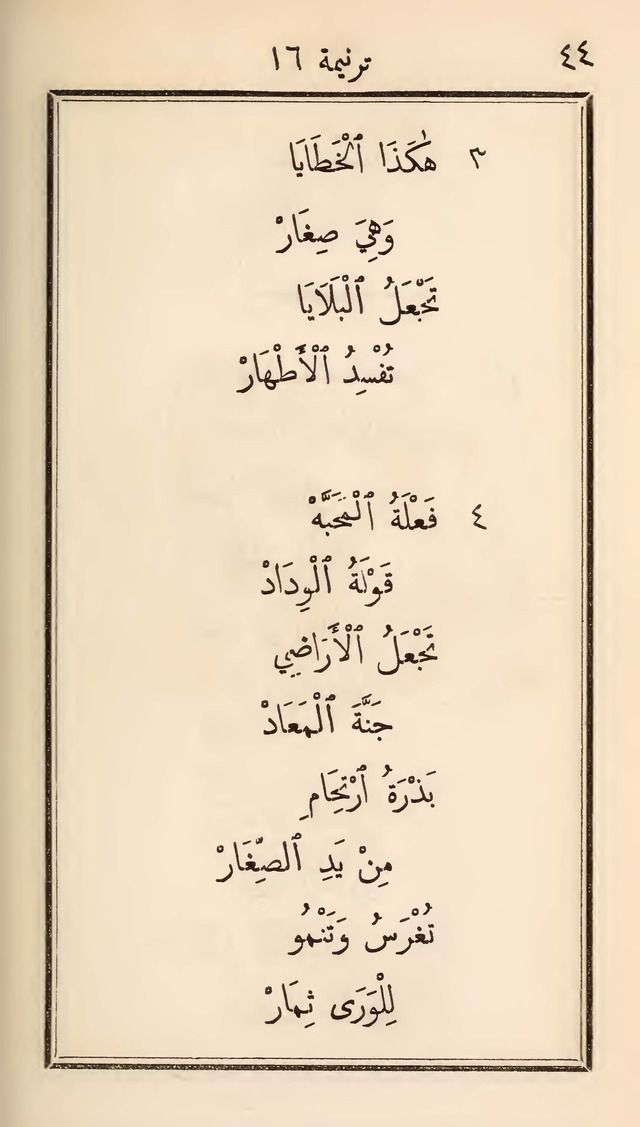 ٤٤
ترنيمة ١٦
٣ هٰكَذَا ٱلْخَطَايَا
وَهِيَ صِغَارْ
تَجْعَلُ ٱلْبَلَايَا
تُفْسِدُ ٱلْأَطْهَارْ
٤ فَعْلَةُ ٱلْمَحَبَّهْ
قَوْلَةُ ٱلْوِدَادْ
تَجْعَلُ ٱلْأَرَاضِي
جَنَّةَ ٱلْمَعَادْ
بَذْرَةُ ٱرْتِحَامِ
مِنْ يَدِ ٱلصِّغَارْ
تُغْرَسُ وَتَنْمُو
لِلْوَرَى ثِمَارْ